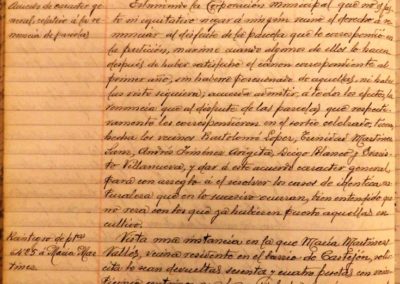 Acuerdo de caracter ge-
neral, relativo á la re-
nuncia de parcelas
Estimando la Corporación municipal que no es jus-
to ni equitativo negar á ningún vecino el derecho á re-
nunciar al disfrute de la parcela que le correspondió en
la partición, maxime cuando algunos de ellos lo hacen
después de haber satisfecho el canon correspondiente al
primer año, sin haberse posesionado de aquellas, ni haber-
las visto siquiera; acuerda admitir, á todos los efectos, la
renuncia que al disfrute de las parcelas que respecti-
vamente les correspondieron en el sorteo celebrado, tienen
hecha los vecinos Bartolomé Lopez, Trinidad Martinez
Sanz, Andrés Jiménez Azigita, Diego Blanco y Evaris-
to Villanueva, y dar á este acuerdo caracter general,
para con arreglo á él resolver los casos de identica na-
turaleza que en lo sucesivo ocurran, bien entendido que
no reza con los que ya hubieren puesto aquellas en
cultivo.
Reintegro de ptas
á Maria Mar-
tinez.
Vista una instancia en la que Maria Martinez
Vallés, vecina residente en el barrio de Castejón, soli-
cita le sean devueltas setenta y cuatro pesetas con vein-